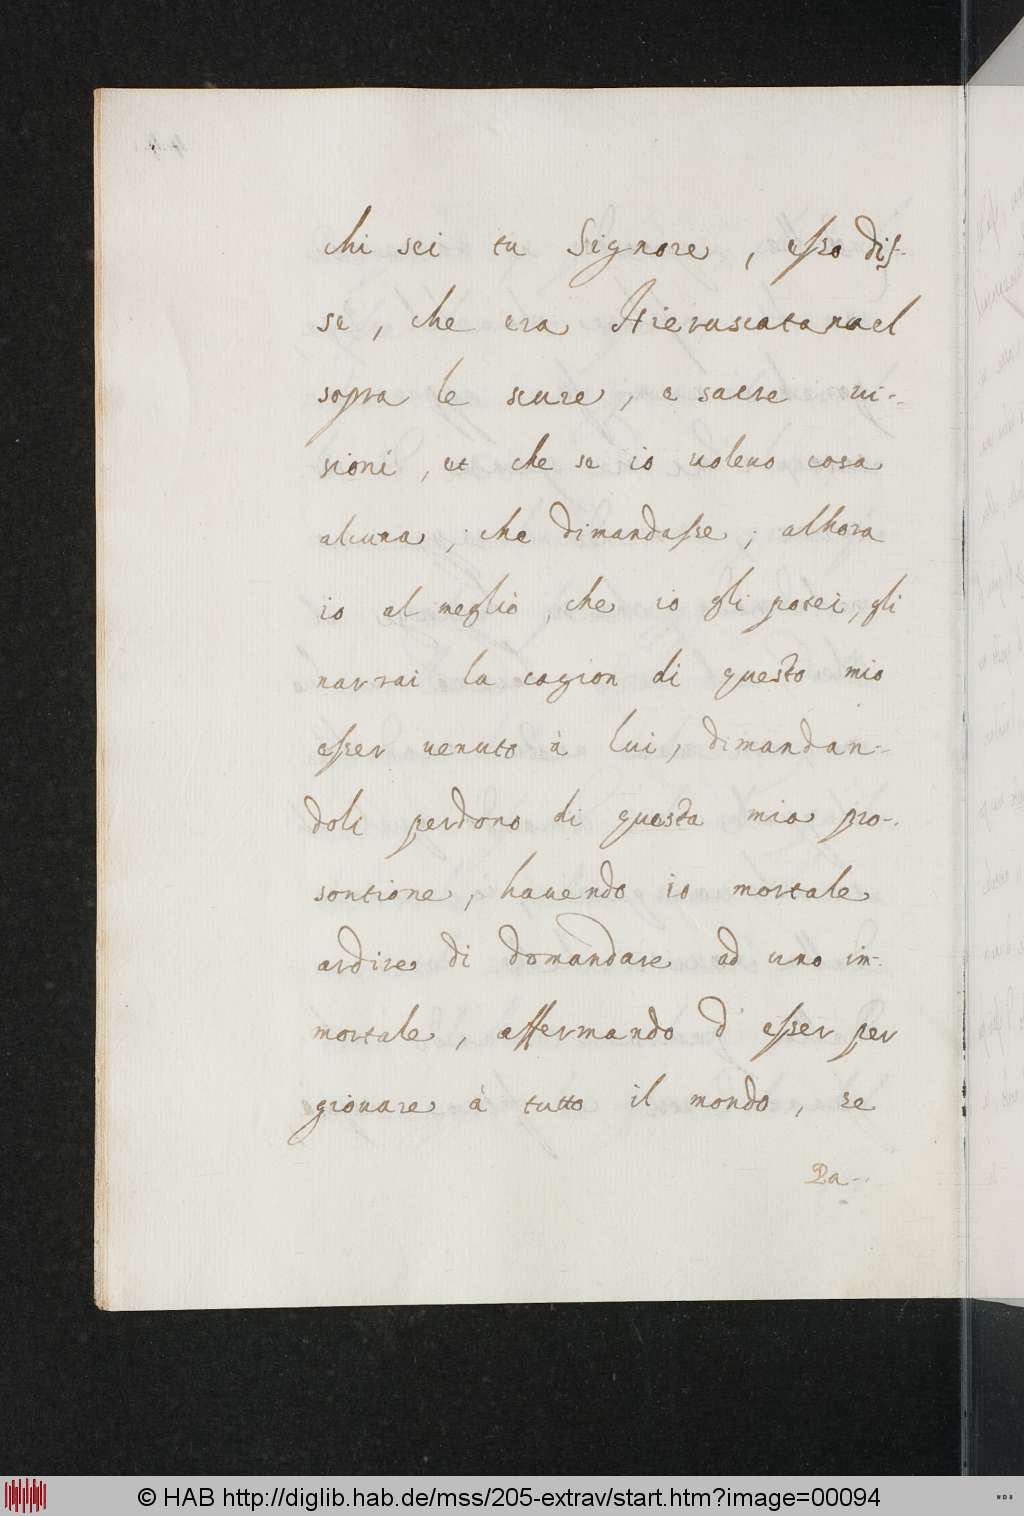 chi sei tu Signore, esso dis-
se, che era Hieruscatanael
sopra le scure, e sacre ui-
sioni, et che se io uoleuo cosa
alcuna, che dimandasse; alhora
io al meglio, che io gli potei, gli
narrai la cagion di questo mio
esser uenuto à lui, dimandan-
doli perdono di questa mia pro-
sontione, hauendo io mortale
ardire di domandare ad uno im-
mortale, affermando d'esser per
giouare à tutto il mondo, se
Da-
© HAB http://diglib.hab.de/mss/205-extrav/start.htm?image=00094